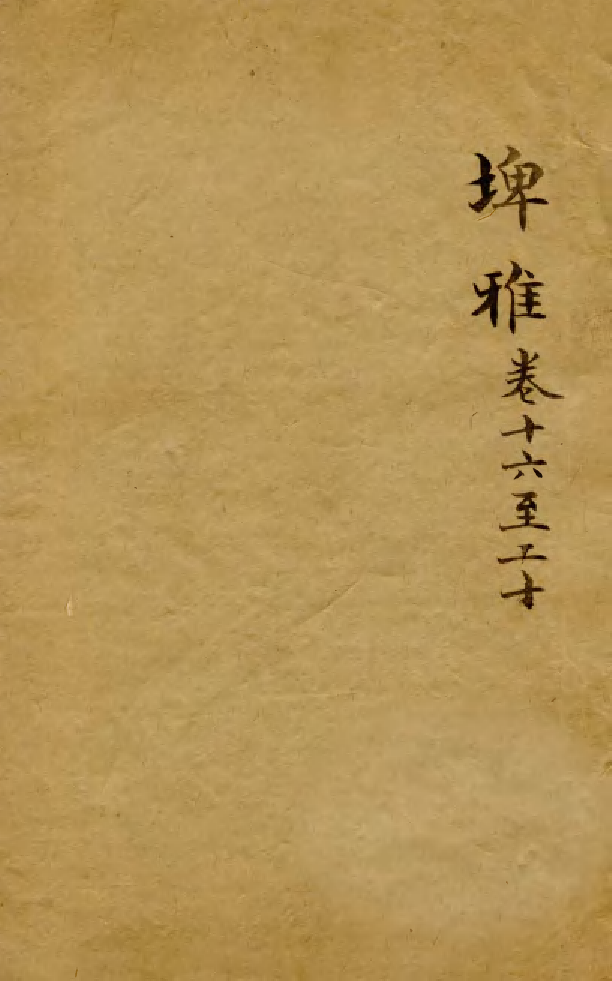 埤雅卷十六至二十